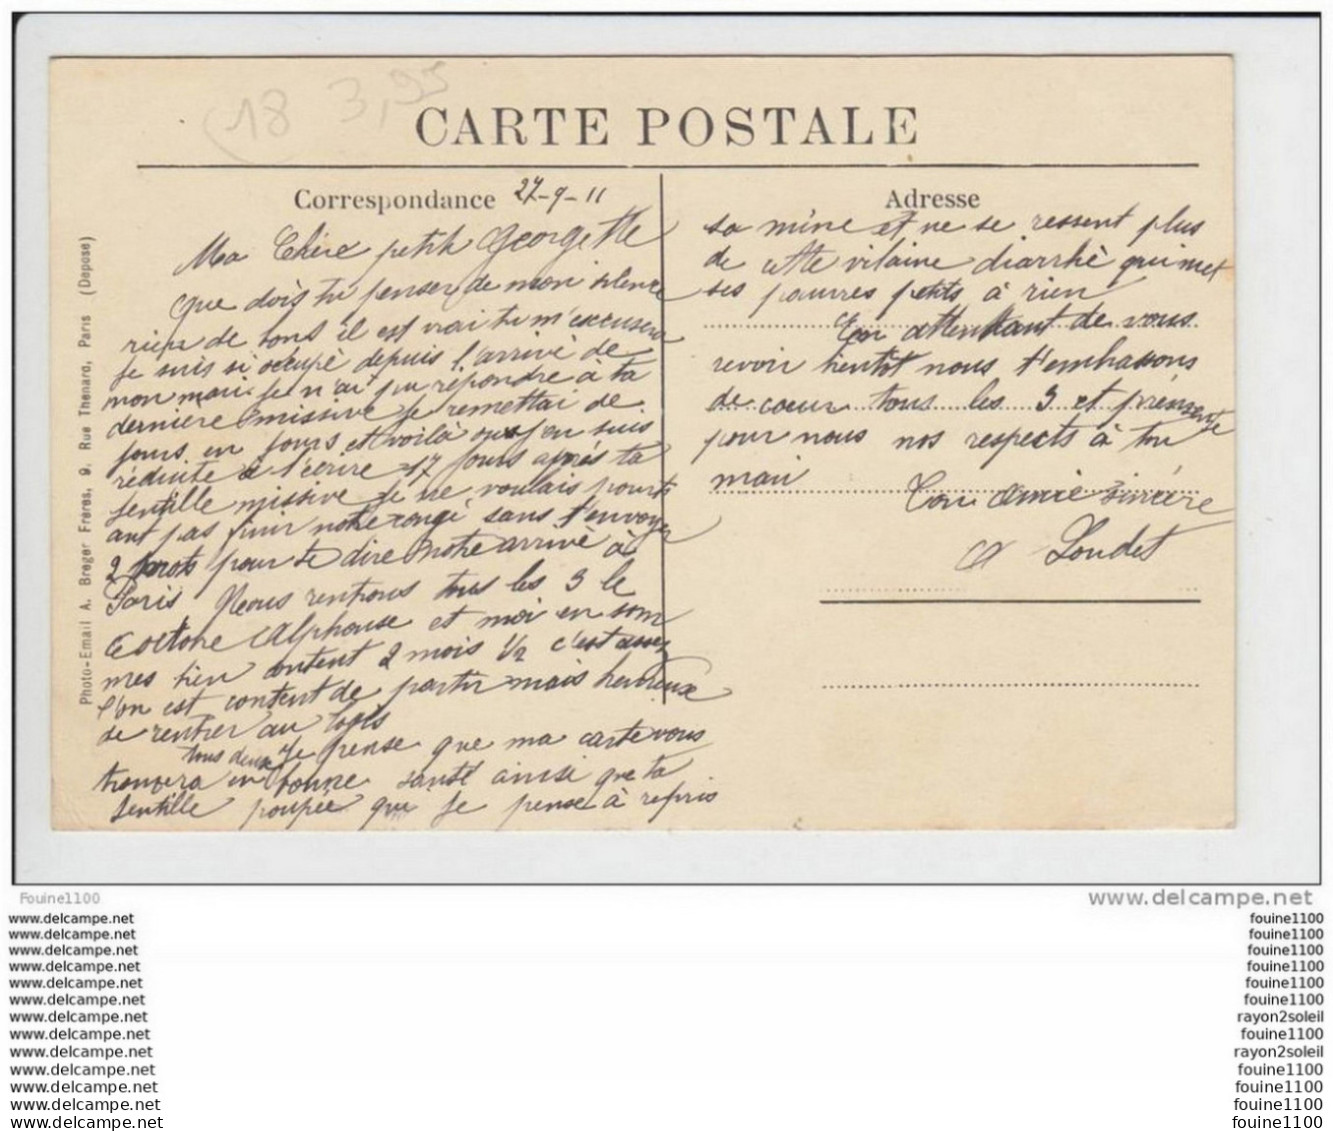 18 3,95
CARTE POSTALE
Correspondance 27-9-11
Adresse
Ma Chère petite Georgette
Que dois tu penser de mon silence
rien de bons il est vrai tu m'excusera
je suis si occupé depuis l'arrivé de
mon mari je n'ai pu répondre à ta
dernière missive je remettai de
jours en jours et voilà que j'en suis
réduite à t'écrire 17 jours après ta
gentille missive je ne voulais pourt
ant pas finir notre congé sans t'envoyer
2 mots pour te dire notre arrivé à
Paris Nous rentrons tous les 3 le
octobre Alphonse et moi en som
mes bien content 2 mois 1/2 c'est assez
l'on est content de partir mais heureuse
de rentrer au logis
tous deux Je pense que ma carte vous
trouvera en bonne santé ainsi que ta
gentille poupée que je pense à repris
sa mine et ne se ressent plus
de cette vilaine diarrhé qui met
ses pauvres petits à rien
En attendant de vous
revoir bientôt nous t'embrassons
de coeur tous les 3 et présente
pour nous nos respects à ton
mari
Ton amie sincère
A Loudet
Photo-Email A. Breger Frères, 9, Rue Thenard, Paris (Deposé)
Fouine1100
www.delcampe.net
www.delcampe.net
fouine1100
www.delcampe.net
fouine1100
www.delcampe.net
fouine1100
www.delcampe.net
fouine1100
www.delcampe.net
fouine1100
www.delcampe.net
fouine1100
www.delcampe.net
rayon2soleil
www.delcampe.net
fouine1100
www.delcampe.net
rayon2soleil
www.delcampe.net
fouine1100
www.delcampe.net
fouine1100
www.delcampe.net
fouine1100
www.delcampe.net
fouine1100